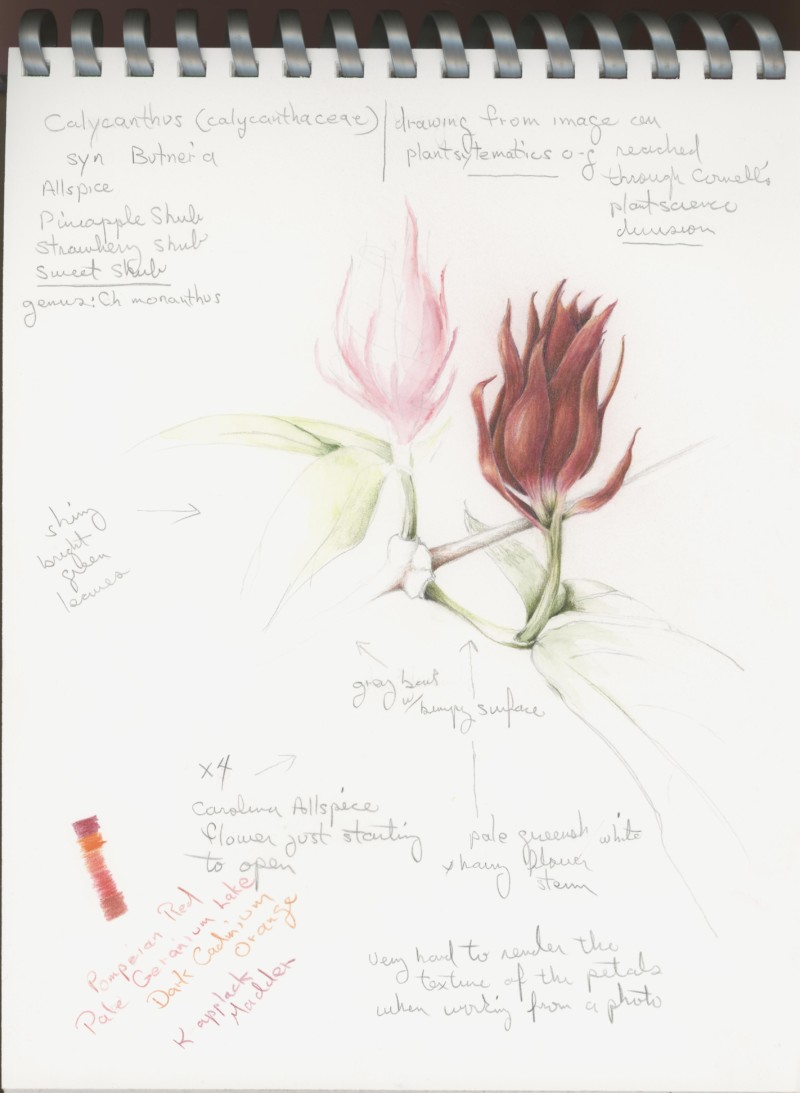 Calycanthus (calycanthaceae)
syn Butneria
Allspice
Pineapple Shub
Strawberry shub
Sweet Shub
genus: Ch monanthus
drawing from image on
plantsytematics org reached
through Cornell's
plant science
division
shiny
bright
green
leaves
gray bark
w/bumpy surface
x4
Carolina Allspice
flower just starting
to open
pale greenish white
x hairy flower
stem
Pompeian Red
Pale Geranium Lake
Dark Cadmium
Orange
Madder
very hard to render the
texture of the petals
when working from a photo